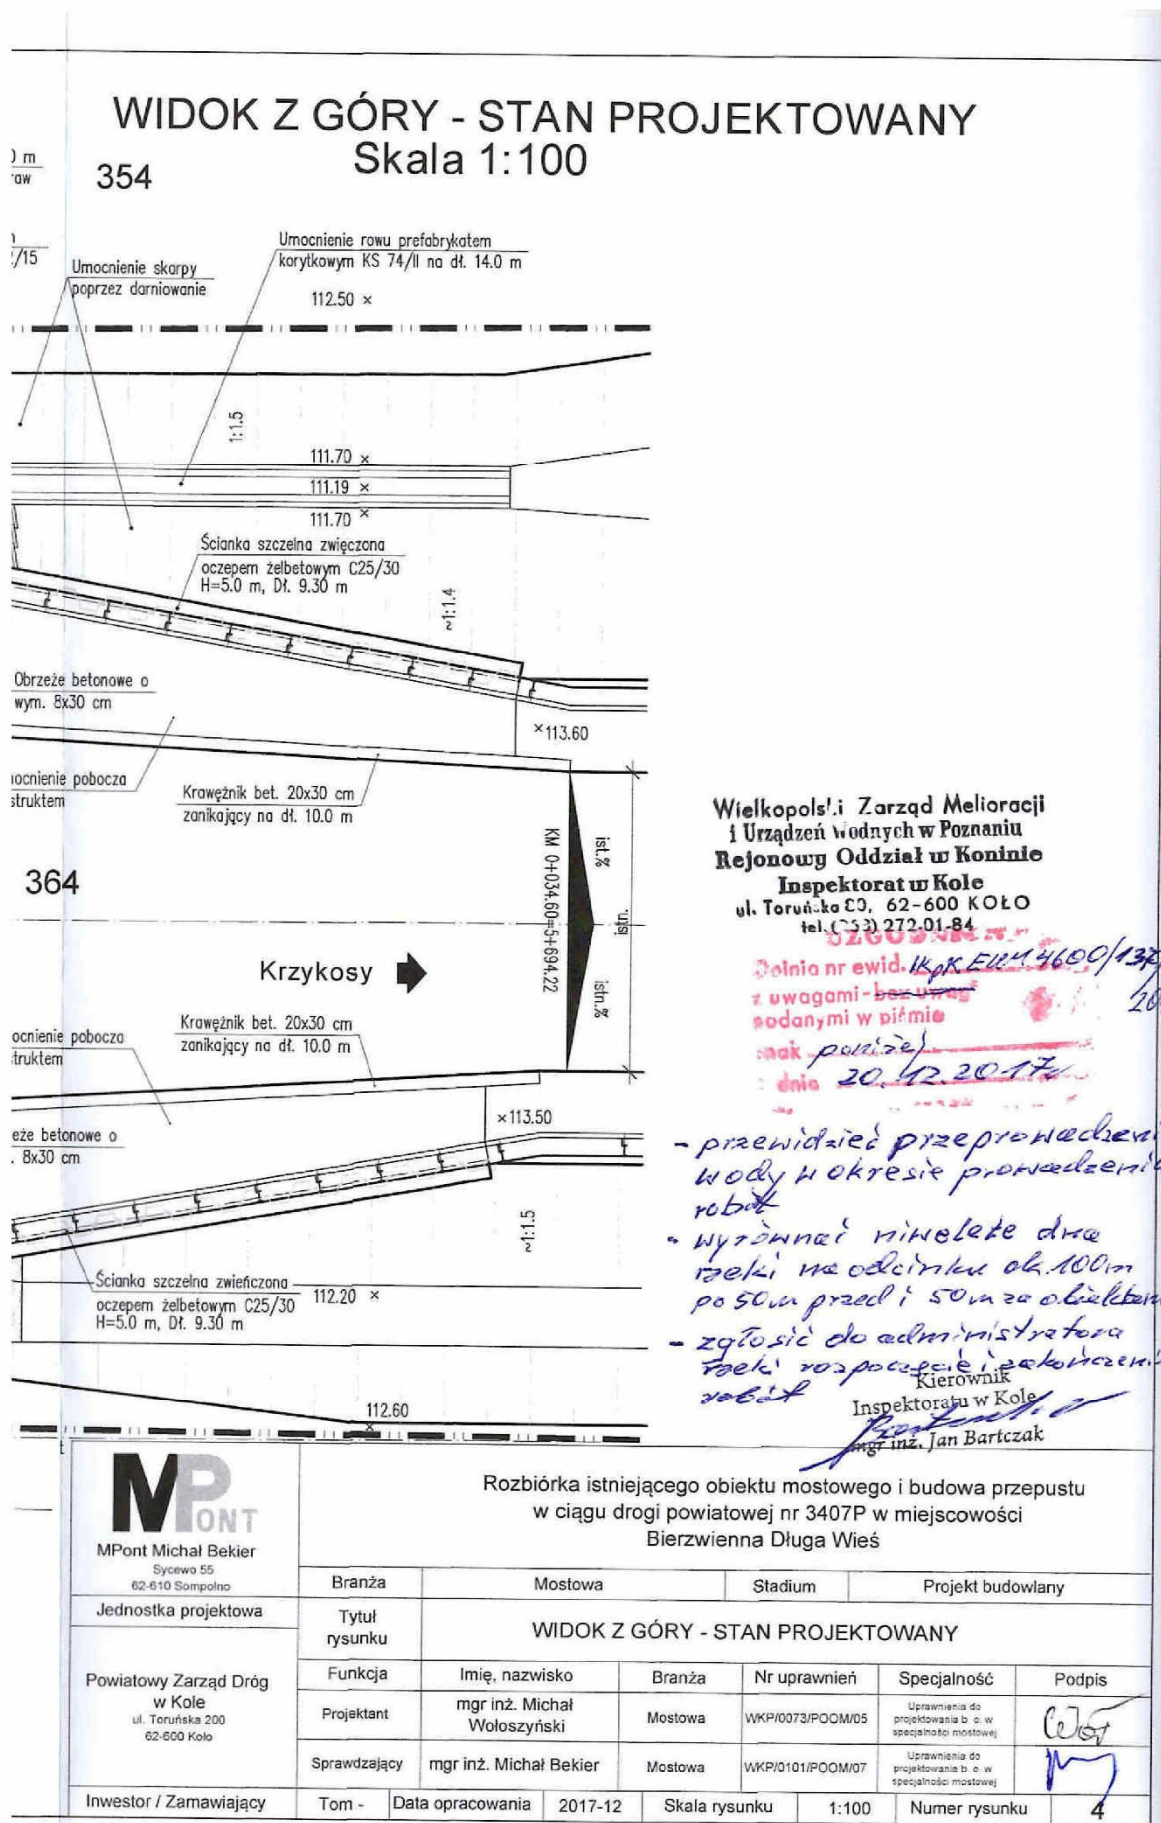 WIDOK Z GÓRY - STAN PROJEKTOWANY
Skala 1:100
354
Umocnienie skarpy
poprzez darniowanie
Umocnienie rowu prefabrykatem
korytkowym KS 74/II na dł. 14.0 m
112.50 ×
1:1.5
111.70 ×
111.19 ×
111.70 ×
Ścianka szczelna zwięczona
oczepem żelbetowym C25/30
H=5.0 m, Dł. 9.30 m
~1:1.4
Obrzeże betonowe o
wym. 8x30 cm
×113.60
ocnienie pobocza
struktem
Krawężnik bet. 20x30 cm
zanikający na dł. 10.0 m
364
KM 0+034.60=5+694.22
ist.%
istn.
istn.%
Krzykosy
Krawężnik bet. 20x30 cm
zanikający na dł. 10.0 m
ocnienie pobocza
truktem
×113.50
eże betonowe o
. 8x30 cm
~1:1.5
Ścianka szczelna zwieńczona
oczepem żelbetowym C25/30
H=5.0 m, Dł. 9.30 m
112.20 ×
112.60
×
Wielkopolski Zarząd Melioracji
i Urządzeń Wodnych w Poznaniu
Rejonowy Oddział w Koninie
Inspektorat w Kole
ul. Toruńska 60, 62-600 KOŁO
tel. 272-01-84
nr ewid.
z uwagami - bez uwag
podanymi w piśmie
znak poniżej
dnia 20.12.2017r
- przewidzieć przeprowadzeni
wody w okresie prowadzenia
robót
- wyrównać niweletę dna
rzeki na odcinku ok. 100m
po 50m przed i 50m za obiektem
- zgłosić do administratora
rzeki rozpoczęcie i zakończeni
robót
Kierownik
Inspektoratu w Kole
mgr inż. Jan Bartczak
MPONT
MPont Michał Bekier
Sycewo 55
62-610 Sompolno
Jednostka projektowa
Powiatowy Zarząd Dróg
w Kole
ul. Toruńska 200
62-600 Koło
Inwestor / Zamawiający
Rozbiórka istniejącego obiektu mostowego i budowa przepustu
w ciągu drogi powiatowej nr 3407P w miejscowości
Bierzwienna Długa Wieś
Branża Mostowa Stadium Projekt budowlany
Tytuł
rysunku
WIDOK Z GÓRY - STAN PROJEKTOWANY
Funkcja Imię, nazwisko Branża Nr uprawnień Specjalność Podpis
Projektant mgr inż. Michał
Wołoszyński
Mostowa WKP/0073/POOM/05
Uprawnienia do
projektowania b. o. w
specjalności mostowej
Sprawdzający mgr inż. Michał Bekier Mostowa WKP/0101/POOM/07
Uprawnienia do
projektowania b. o. w
specjalności mostowej
Tom - Data opracowania 2017-12 Skala rysunku 1:100 Numer rysunku 4